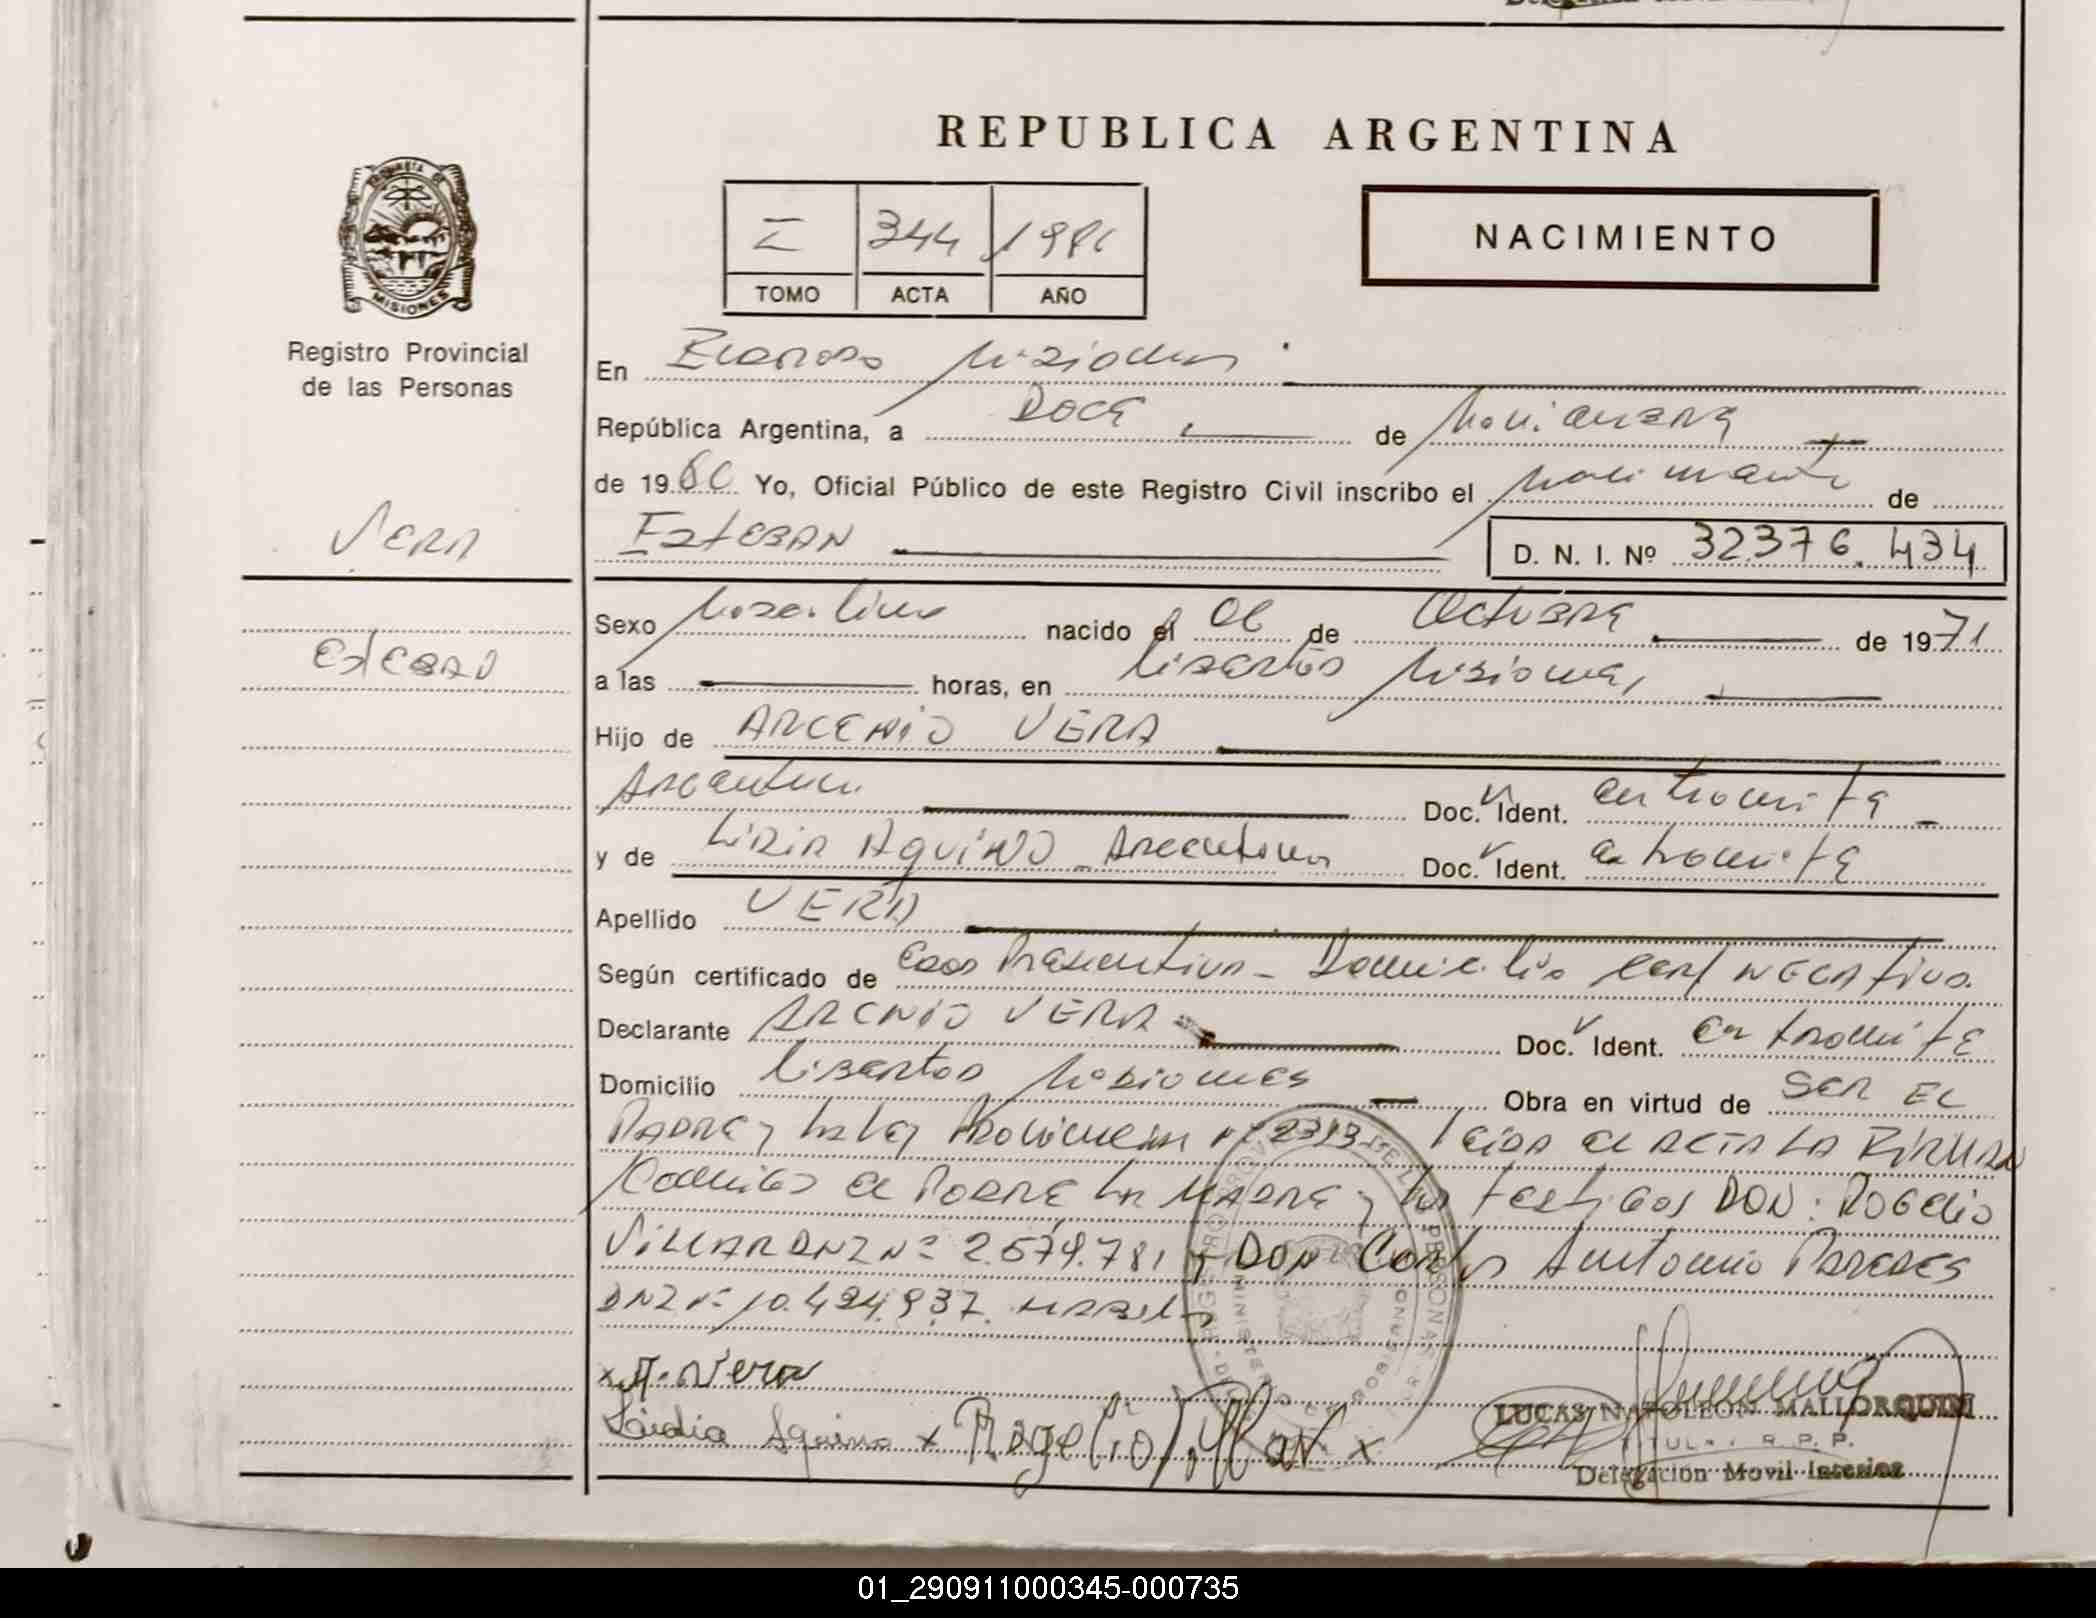 REPUBLICA ARGENTINA
I 344 1981
TOMO ACTA AÑO
NACIMIENTO
MISIONES
Registro Provincial
de las Personas
VERA
ESTEBAN
En Misiones
República Argentina, a DOCE de Noviembre
de 1980 Yo, Oficial Público de este Registro Civil inscribo el Nacimiento de
ESTEBAN D. N. I. Nº 32.376.434
Sexo Masculino nacido el 06 de Octubre de 1971
a las horas, en Libertad Misiones
Hijo de ARCENIO VERA
Argentino Doc. Ident. en tramite
y de LIDIA AQUINO - Argentina Doc. Ident. en tramite
Apellido VERA
Según certificado de Edad Presuntiva - Domicilio Cert NEGATIVO.
Declarante ARCNIO VERA Doc. Ident. En tramite
Domicilio Libertad Misiones Obra en virtud de SER EL
PADRE y Ley Provincial Nº 2313 Leida el ACTA LA FIRMAN
Conmigo el PADRE LA MADRE y los testigos DON: ROGELIO
VILLAR DNI Nº 2.679.781 y DON Carlos Antonio PAREDES
DNI Nº 10.494.937.
x A. Vera
Lidia Aquino x Rogelio Villar x
LUCAS NAPOLEON MALLORQUIN
TITULAR R.P.P.
Delegacion Movil Interior
01_290911000345-000735